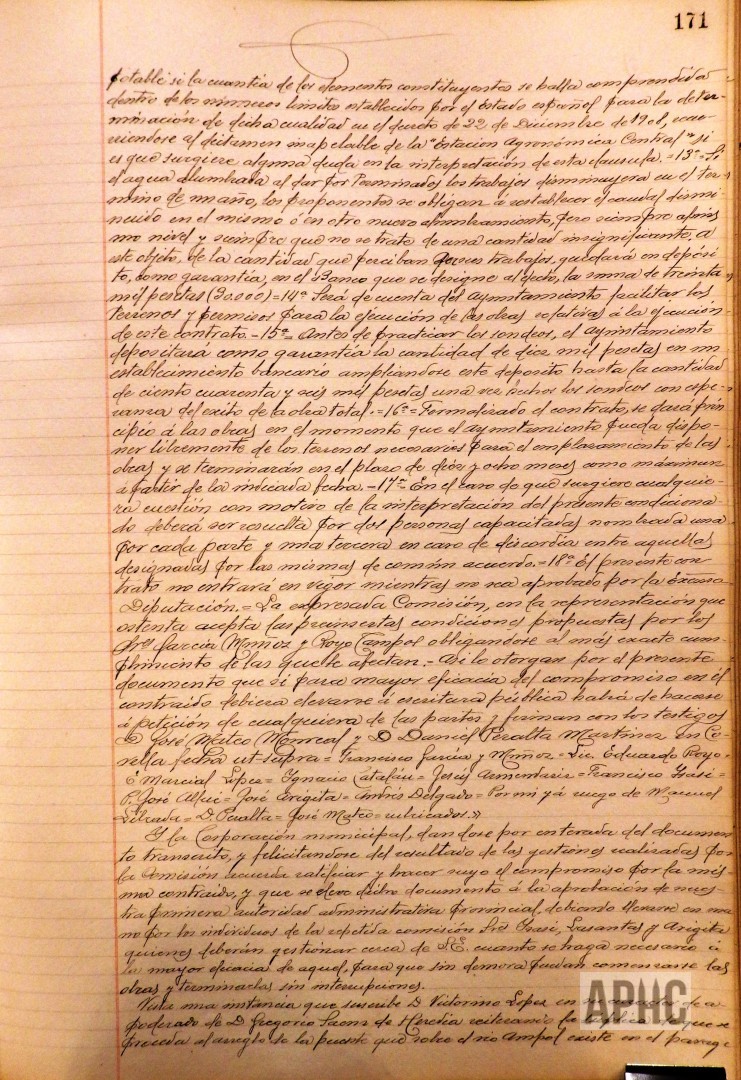 171
potable si la cuantia de los elementos constituyentes se halla comprendida
dentro de los números limites establecidos por el Estado español para la deter-
minación de dicha cualidad en el decreto de 22 de Diciembre de 1908, recur-
riendose al dictamen inapelable de la "Estacion Agronómica Central" si
es que surgiere alguna duda en la interpretación de esta clausula. = 13ª = Si
el agua alumbrada al dar por terminados los trabajos disminuyera en el tér-
mino de un año, los proponentes se obligan á restablecer el caudal dismi
nuido en el mismo ó en otro nuevo alumbramiento, pero siempre al mis
mo nivel y siempre que no se trate de una cantidad insignificante. A
este objeto, de la cantidad que perciban por sus trabajos, quedará en depósi
to, como garantía, en el Banco que se designe al efecto, la suma de treinta
mil pesetas (30.000) = 14ª Será de cuenta del Ayuntamiento facilitar los
terrenos y permisos para la ejecución de las obras relativas á la ejecución
de este contrato. - 15ª = Antes de practicar los sondeos, el ayuntamiento
depositará como garantía la cantidad de diez mil pesetas en un
establecimiento bancario ampliandose este deposito hasta la cantidad
de ciento cuarenta y seis mil pesetas una vez hechos los sondeos con espe-
ranza del exito de la obra total. = 16ª = Formalizado el contrato, se dará prin
cipio á las obras en el momento que el ayuntamiento pueda dispo-
ner libremente de los terrenos necesarios para el emplazamiento de las
obras y se terminarán en el plazo de diez y ocho meses como máximun
á partir de la indicada fecha. - 17ª = En el caso de que surgiere cualquie-
ra cuestión con motivo de la interpretación del presente condiciona
do deberá ser resuelta por dos personas capacitadas nombrada una
por cada parte y una tercera en caso de discordia entre aquellas
designadas por las mismas de común acuerdo. = 18ª El presente con
trato no entrará en vigor mientras no sea aprobado por la Excma
Diputación. = La expresada Comisión, en la representación que
ostenta acepta las preinsertas condiciones propuestas por los
Sres Garcia Muñoz y Royo Campos obligandose al más exacto cum-
plimiento de las que le afectan. - Asi lo otorgan por el presente
documento que si para mayor eficacia del compromiso en él
contraido debiera elevarse á escritura pública habrá de hacerse
á petición de cualquiera de las partes y firman con los testigos
D José Mateo Monreal y D Daniel Peralta Martínez en Co-
rella fecha ut-supra = Francisco Garcia y Muñoz = Lic. Eduardo Royo.
= Marcial Lopez = Ignacio Catalán = Jesús Armendariz = Francisco
P. José = José Arigita = Andrés Delgado = Por mi y á ruego de Manuel
= D. Peralta = José Mateo = rubricados.»
Y la Corporación municipal, dandose por enterada del documen
to transcrito, y felicitandose del resultado de las gestiones realizadas por
la Comisión acuerda ratificar y hacer suyo el compromiso por la mis-
ma contraido, y que se eleve dicho documento á la aprobación de nues-
tra primera autoridad administrativa provincial, debiendo llevarse en ma
no por los individuos de la repetida comisión Sres Lasantas y Arigita
quienes deberán gestionar cerca de S.E. cuanto se haga necesario á
la mayor eficacia de aquel, para que sin demora puedan comenzarse las
obras y terminarlas sin interrupciones.
Vista una instancia que suscribe D Victorino Lopez en de a
poderado de D Gregorio Saenz de Heredia reiterando la súplica de que se
proceda al arreglo de la puente que sobre el rio Ampol existe en el parage
APHC